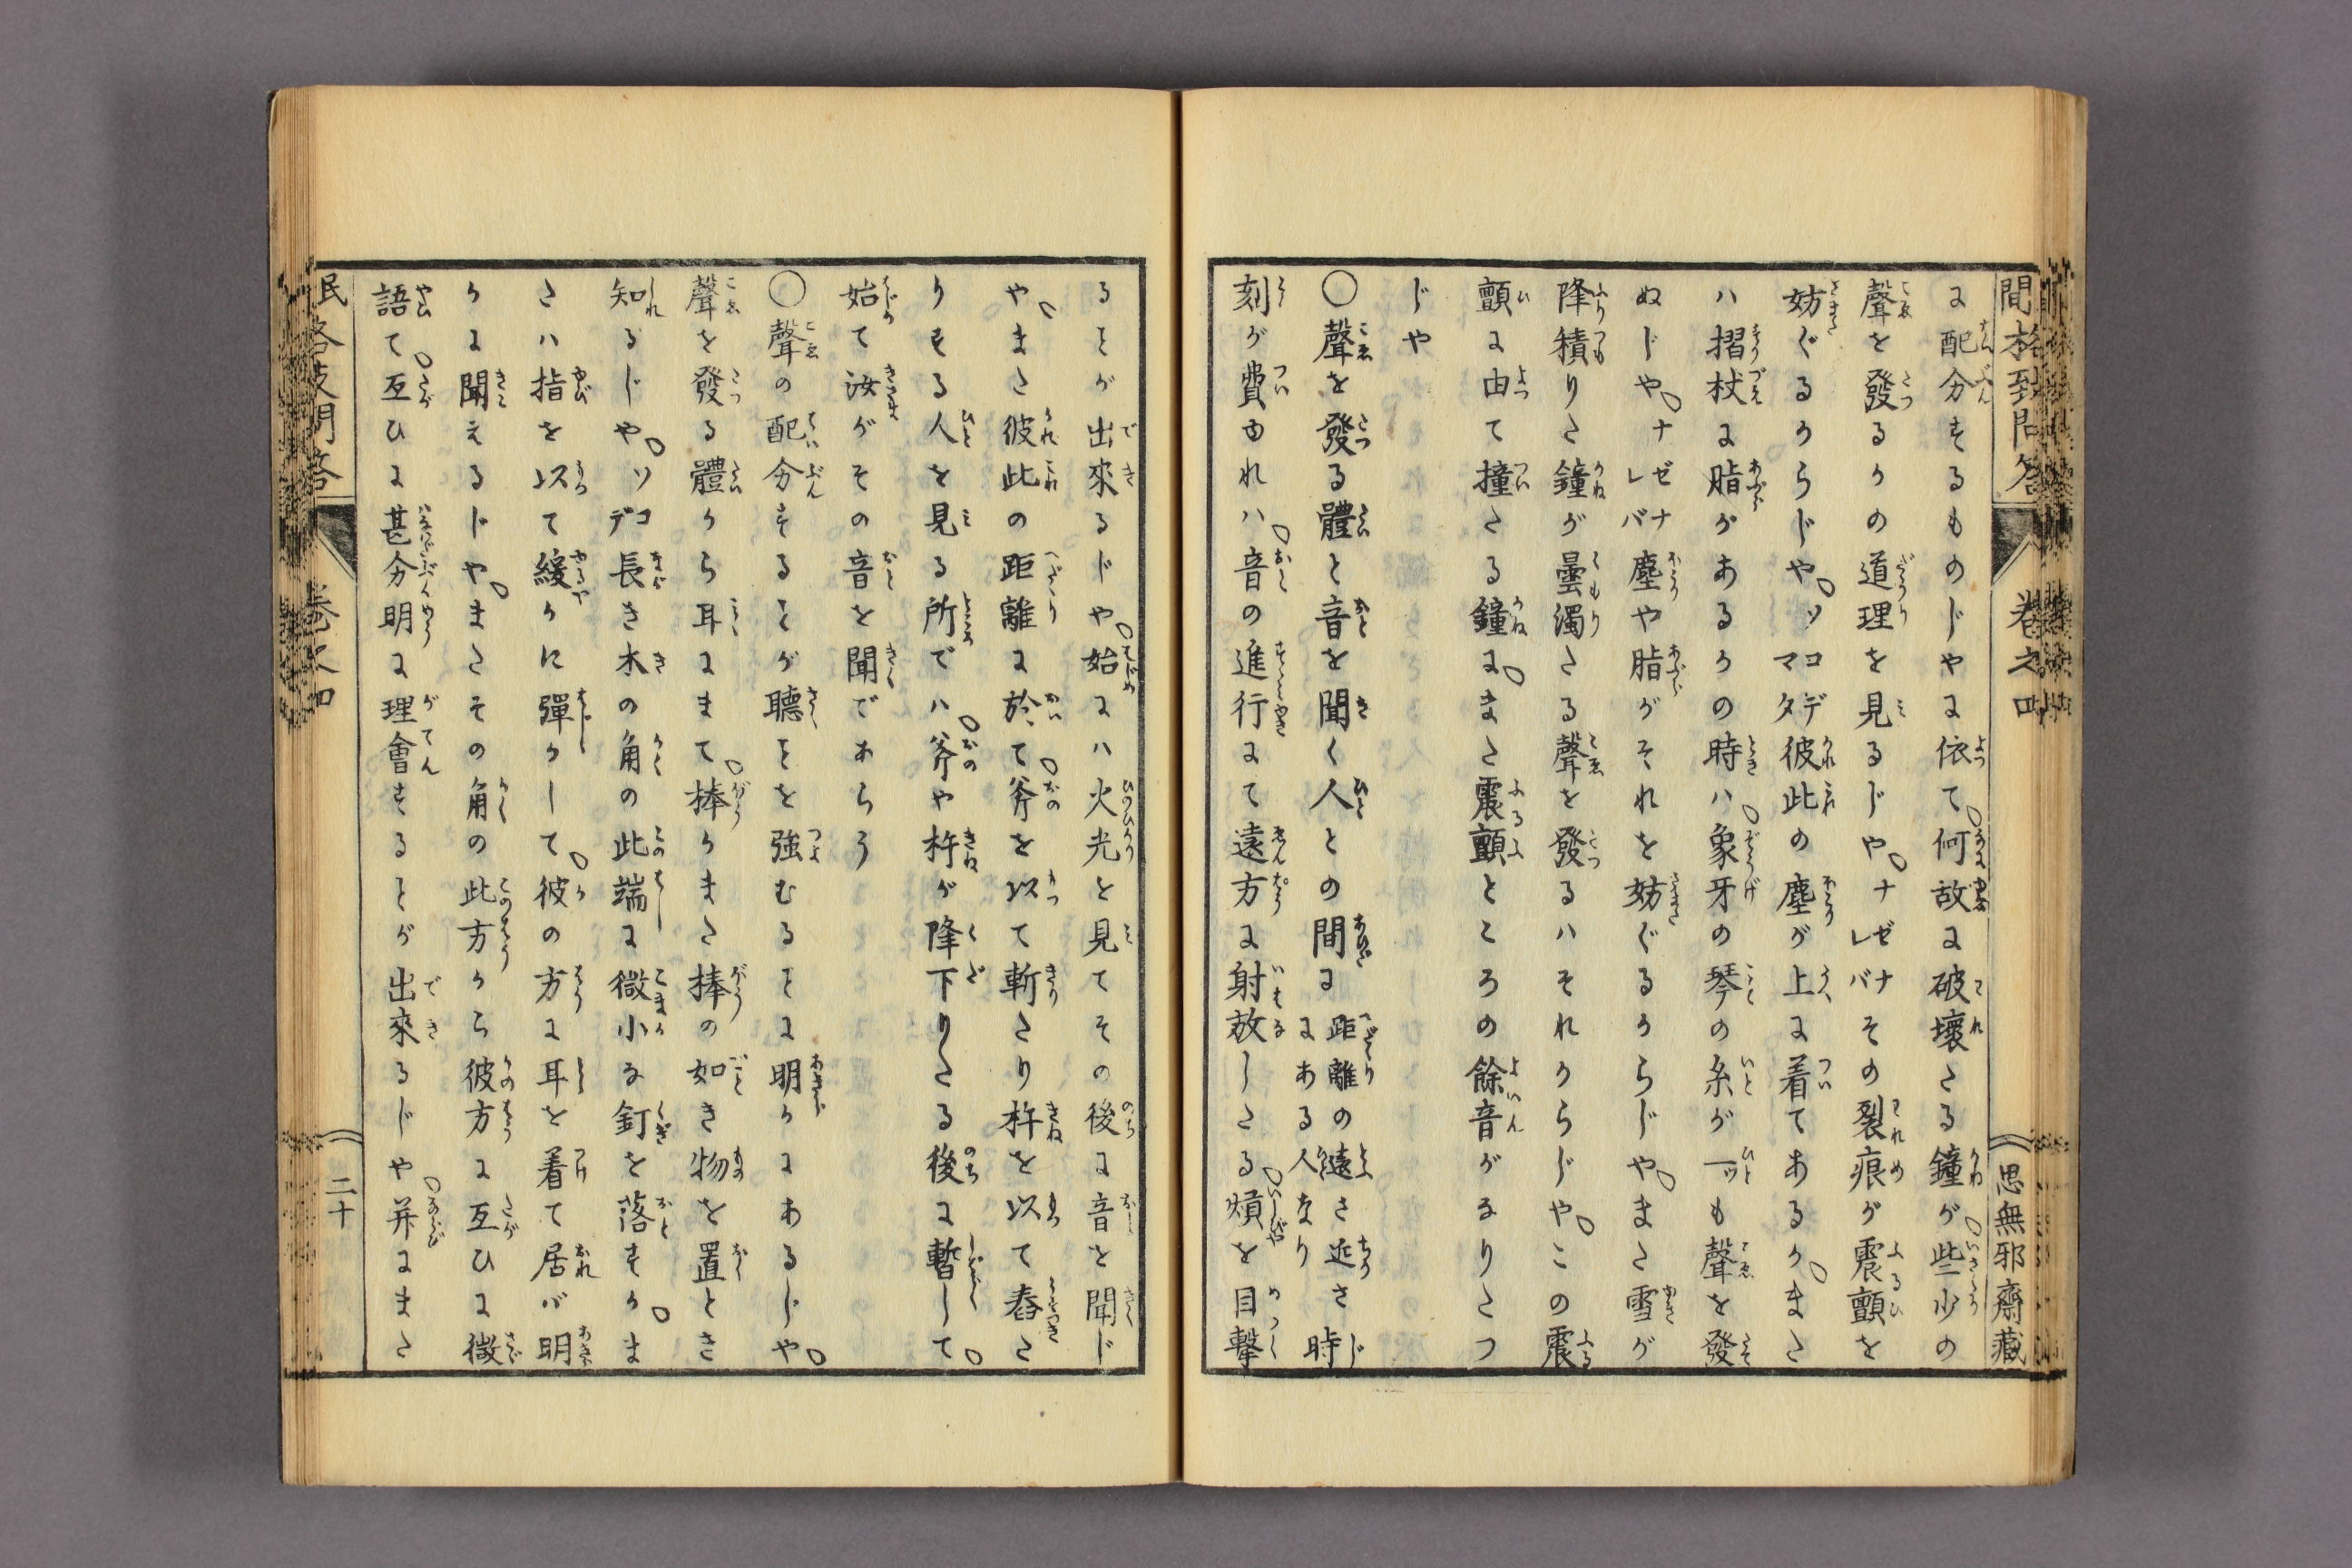 民間格致問答
巻之四
思無邪齋藏
に配分するものじやに依て何故に破壊たる鐘が些少の
聲を發るかの道理を見るじやナゼナレバその裂痕が震顫を
妨ぐるからじやソコデマタ彼此の塵が上に着てあるかまた
ハ摺杖に脂があるかの時ハ象牙の琴の糸が一ッも聲を發
ぬじやナゼナレバ塵や脂がそれを妨ぐるからじやまた雪が
降積りた鐘が曇濁たる聲を發るハそれからじやこの震
顫に由て撞たる鐘にまた震顫ところの餘音がなりたつ
じや
○聲を發る體と音を聞く人との間に距離の遠さ近さにある 時
刻が費ゆれハ音の進行にて遠方に射放したる熕を目撃
るとが出來るじや始にハ火光を見てその後に音を聞じ
やまた彼此の距離に於て斧を以て斬たり杵を以て舂た
りする人を見る所でハ斧や杵が降下りたる後に暫して
始て汝がその音を聞であらう
○聲の配分するとが聽とを強むるとに明かにあるじや
聲を發る體から耳にまて捧かまた捧の如き物を置とき
知るじやソコデ長き木の角の此端に微小な釘を落すかま
たハ指を以て緩かに彈かして彼の方に耳を着て居が明
かに聞えるじやまたその角の此方から彼方に互ひに微
語て互ひに甚分明に理會するとが出來るじや并にまた
民間格致問答
巻之四
二十